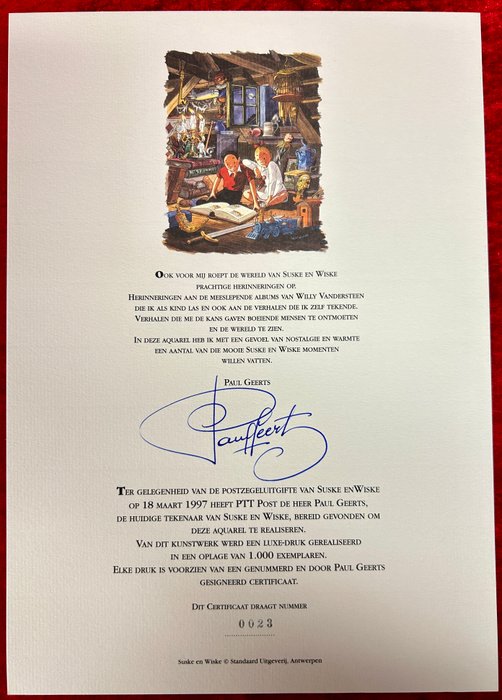 Ook voor mij roept de wereld van Suske en Wiske
prachtige herinneringen op.
Herinneringen aan de meeslepende albums van Willy Vandersteen
die ik als kind las en ook aan de verhalen die ik zelf tekende.
Verhalen die me de kans gaven boeiende mensen te ontmoeten
en de wereld te zien.
In deze aquarel heb ik met een gevoel van nostalgie en warmte
een aantal van die mooie Suske en Wiske momenten
willen vatten.
Paul Geerts
Paul Geerts
Ter gelegenheid van de postzegeluitgifte van Suske enWiske
op 18 maart 1997 heeft PTT Post de heer Paul Geerts,
de huidige tekenaar van Suske en Wiske, bereid gevonden om
deze aquarel te realiseren.
Van dit kunstwerk werd een luxe-druk gerealiseerd
in een oplage van 1.000 exemplaren.
Elke druk is voorzien van een genummerd en door Paul Geerts
gesigneerd certificaat.
Dit Certificaat draagt nummer
0023
Suske en Wiske © Standaard Uitgeverij, Antwerpen